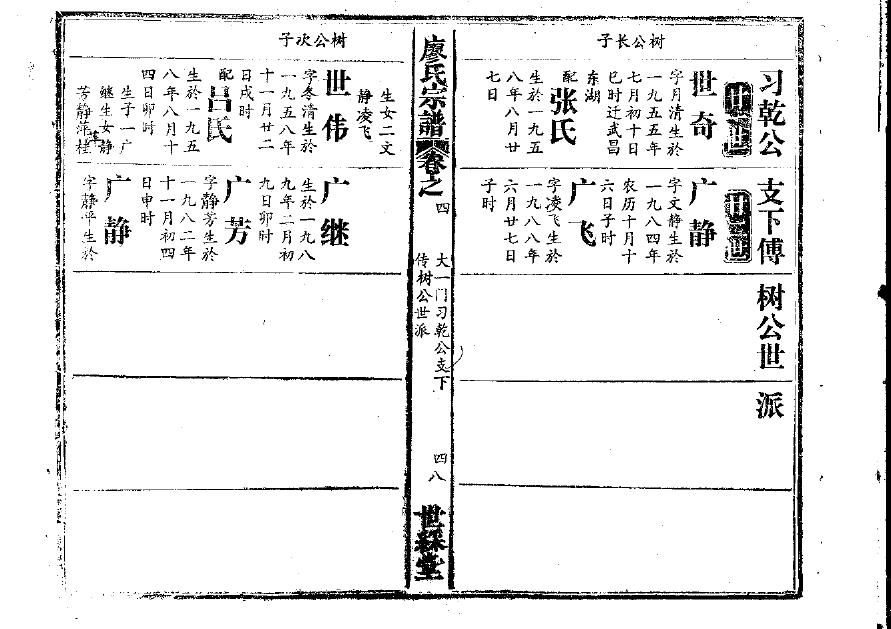 习乾公支下傅树公世派
树公长子
世奇
字月清生於
一九五五年
七月初十日
巳时迁武昌
东湖
配
张氏
生於一九五
八年八月廿
七日
生女二文
静凌飞
广静
字文静生於
一九八四年
农历十月十
六日子时
广飞
字凌飞生於
一九八八年
六月廿七日
子时
廖氏宗譜
卷之四
大一门习乾公支下
传树公世派
四八
世綵堂
树公次子
世伟
字冬清生於
一九五八年
十一月廿二
日戌时
配
吕氏
生於一九五
八年八月十
四日卯时
生子一广
继生女静
芳静萍
广继
生於一九八
九年二月初
九日卯时
广芳
字静芳生於
一九八二年
十一月初四
日申时
广静
字静平生於